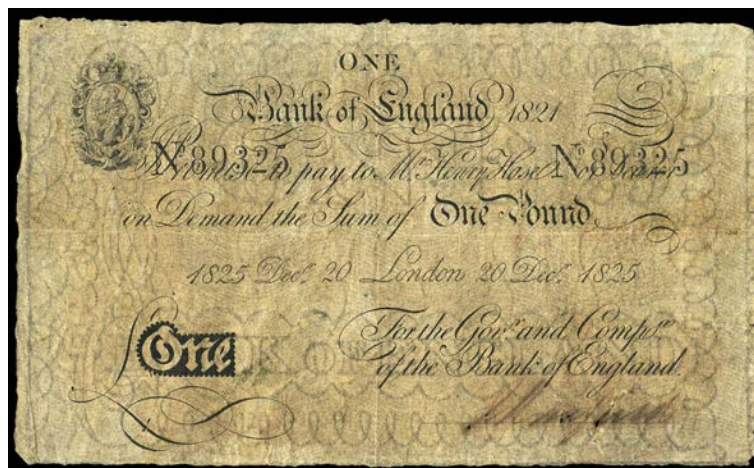 ONE
Bank of England 1821
Nº 89325 Nº 89325
I Promise to pay to Mr. Henry Hase or bearer
on Demand the Sum of One Pound
1825 Decr. 20 London 20 Decr. 1825
For the Govr. and Compa.
One
of the Bank of England.